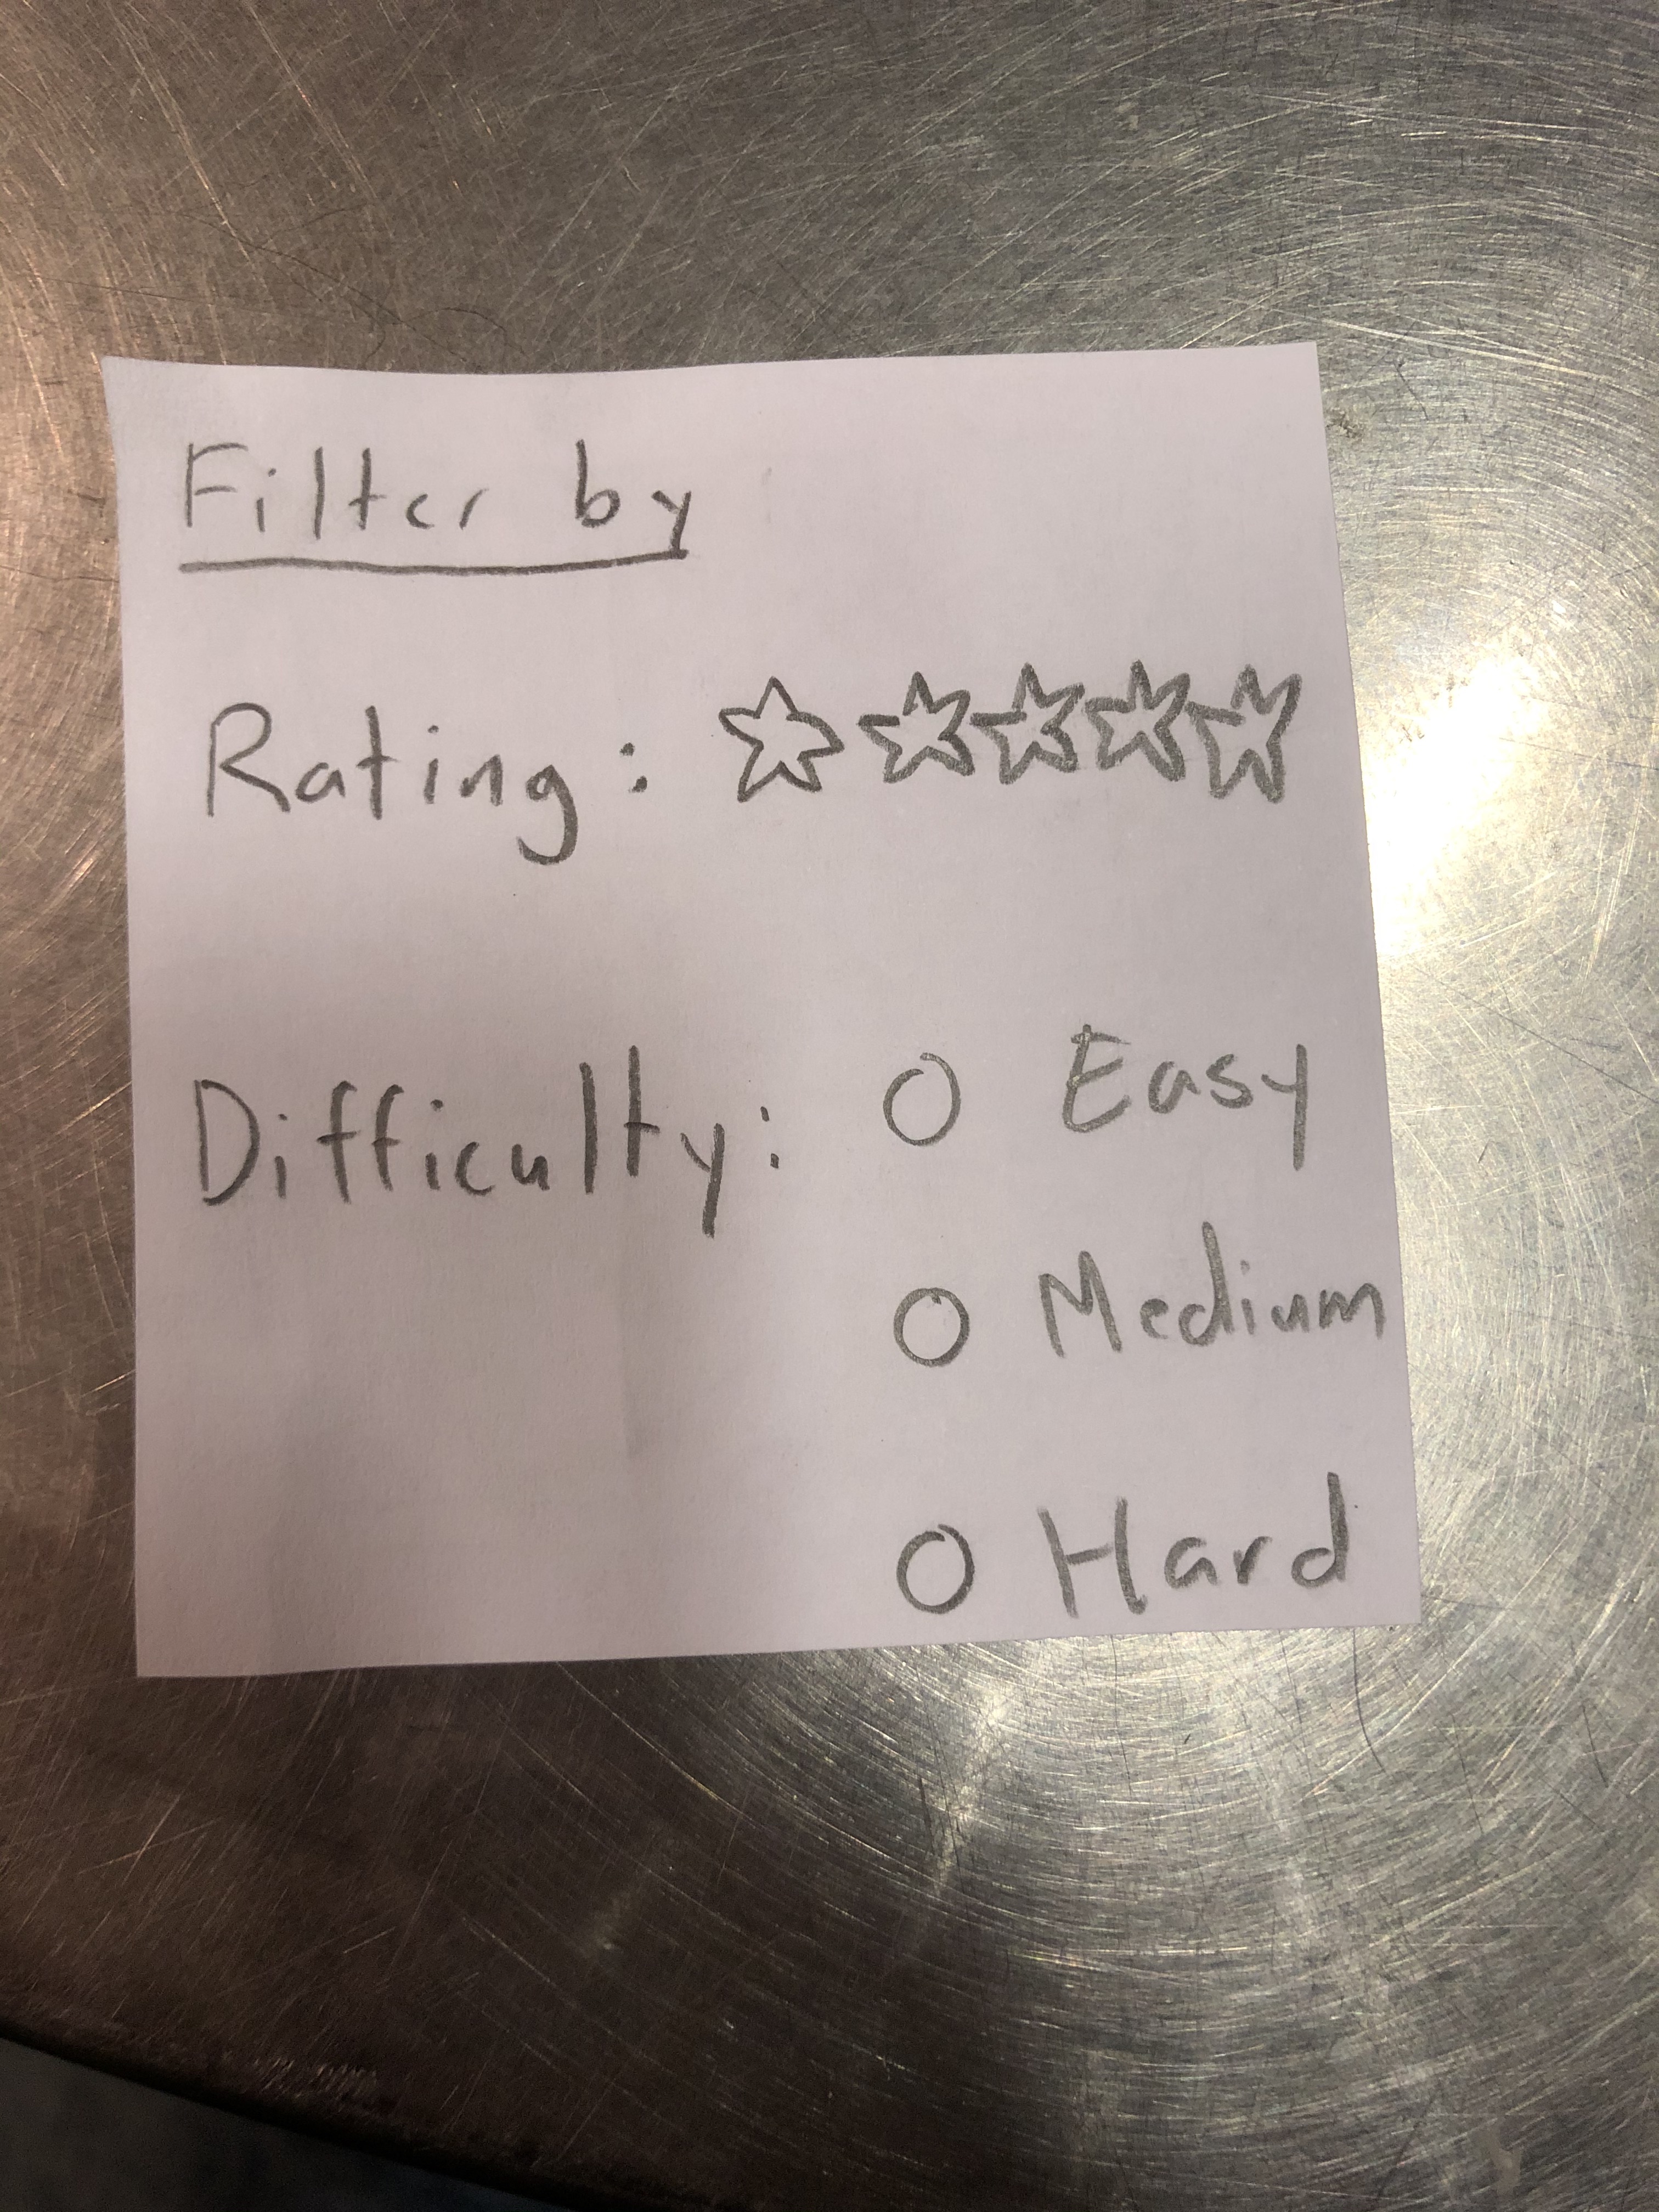 Filter by
Rating: ☆☆☆☆☆
Difficulty: O Easy
O Medium
O Hard